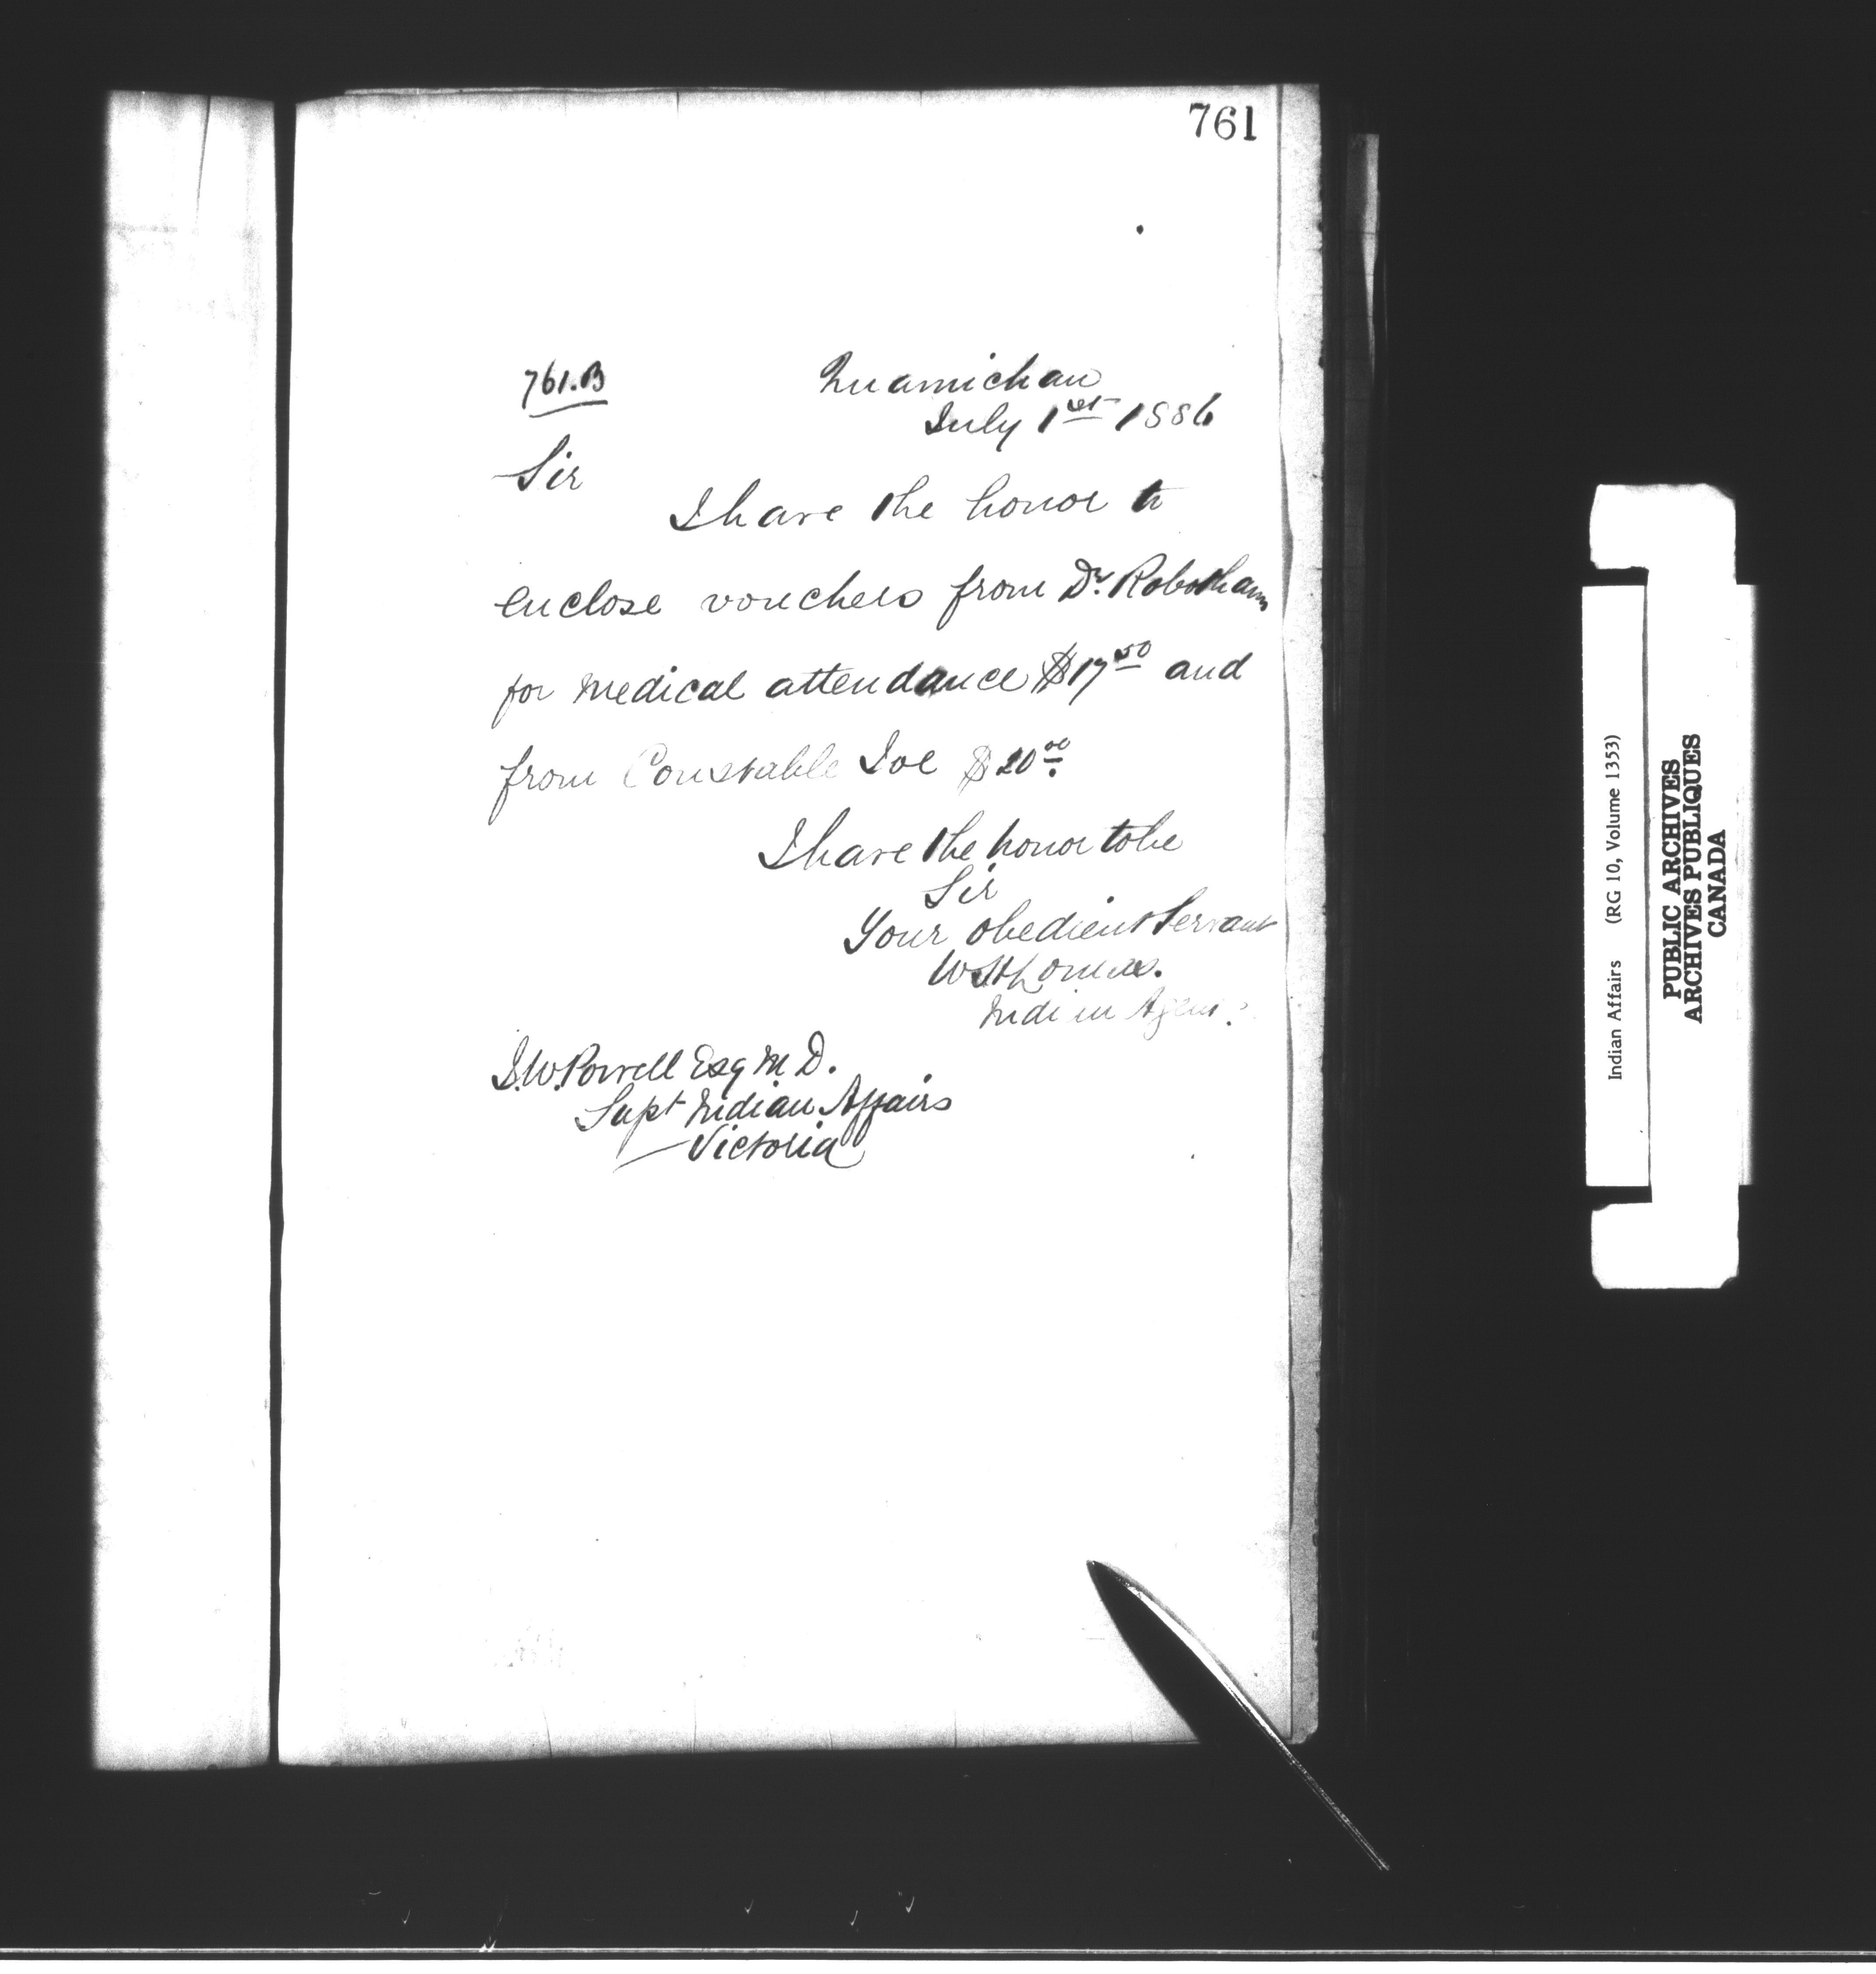 761
761.B
Quamichan
July 1st 1886
Sir
I have the honor to
enclose vouchers from Dr. Robotham
for medical attendance $17 50 and
from Constable Joe $20 00.
I have the honor to be
Sir
Your obedient Servant
W H Lomas.
Indian Agent.
I.W. Powell Esq M D.
Supt Indian Affairs
Victoria
Indian Affairs (RG 10, Volume 1353)
PUBLIC ARCHIVES
ARCHIVES PUBLIQUES
CANADA